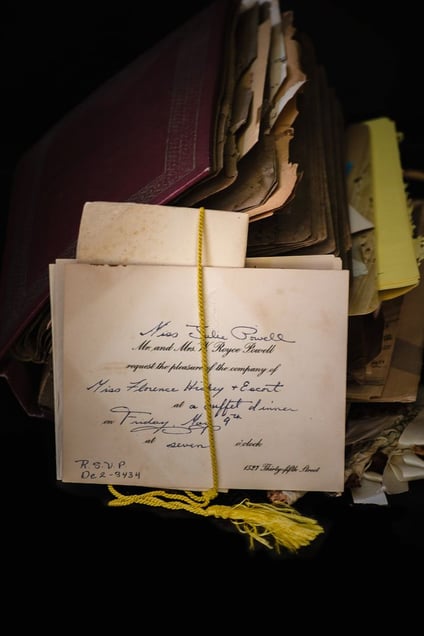 Miss Julie Powell
Mr. and Mrs. W. Royce Powell
request the pleasure of the company of
Miss Florence & Escort
at a buffet dinner
on Friday, May 9th
at seven o'clock
R.S.V.P.
De 2-3434
1527 Thirty-fifth Street